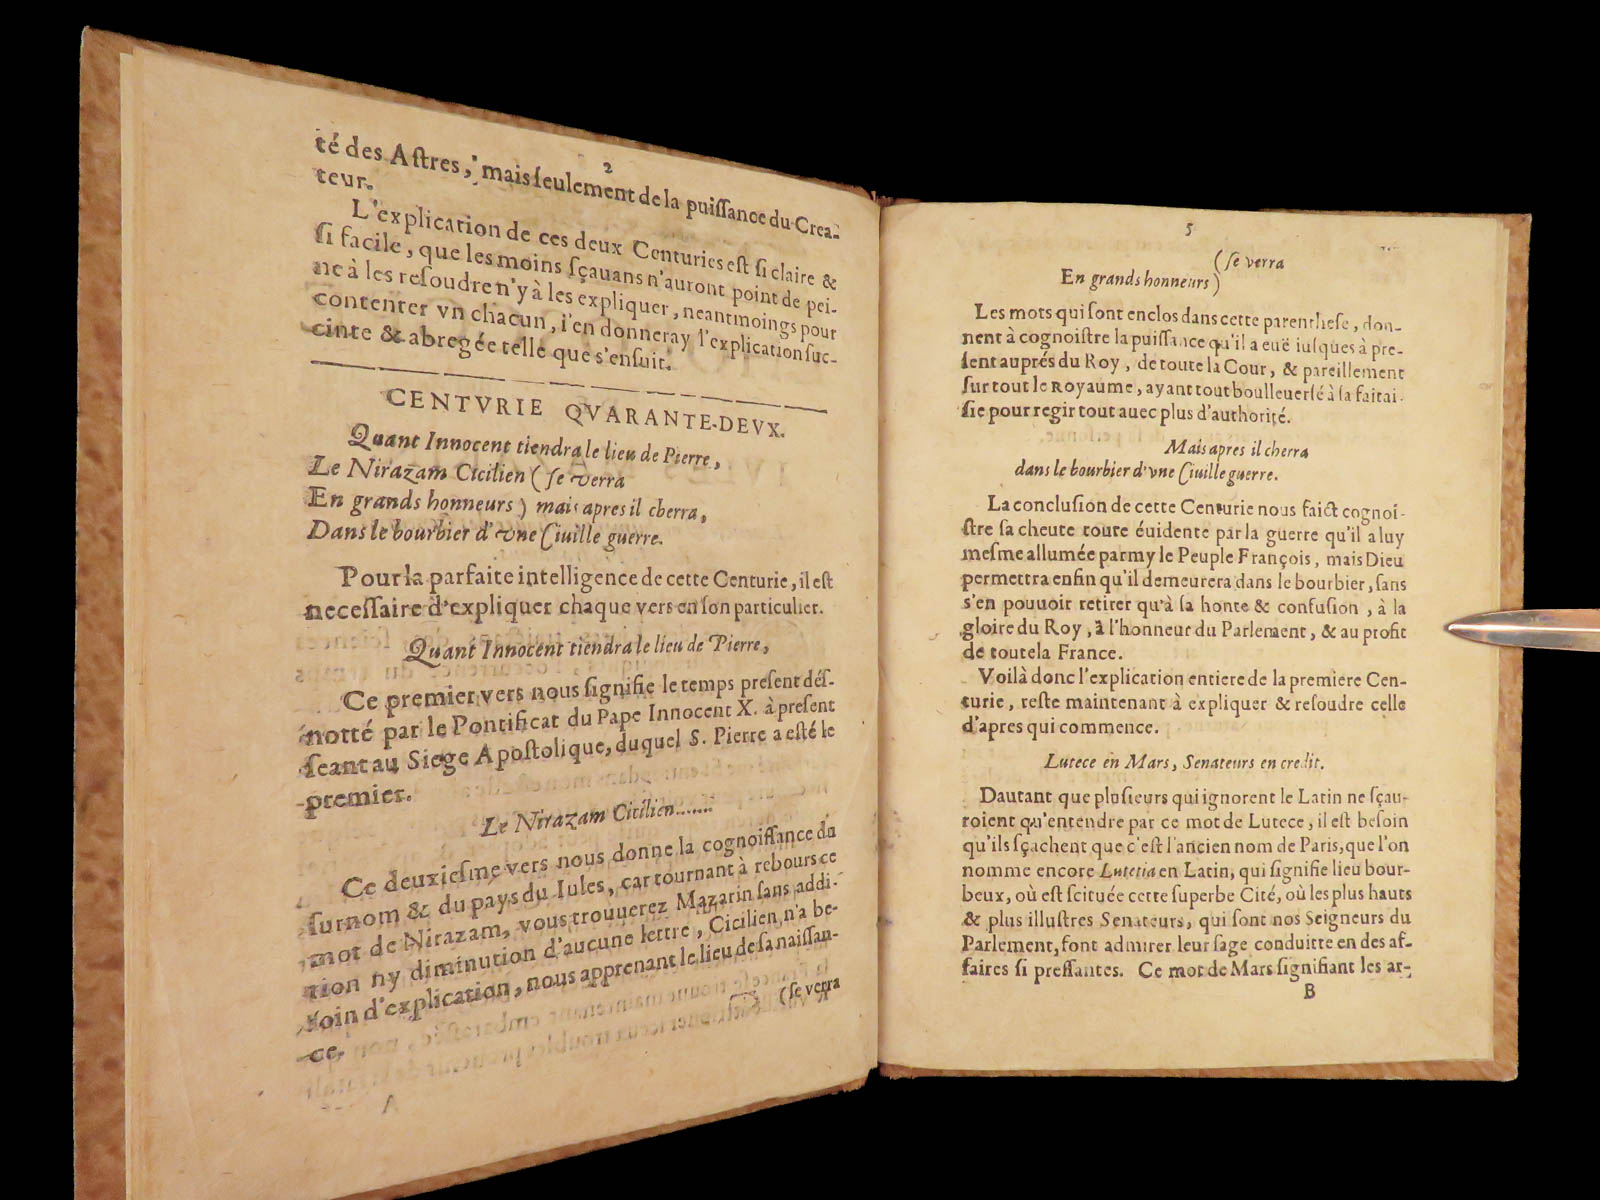 2
té des Aſtres, mais ſeulement de la puiſſance du Crea-
teur.
L'explication de ces deux Centuries eſt ſi claire &
ſi facile, que les moins ſçauans n'auront point de pei-
ne à les reſoudre n'y à les expliquer, neantmoings pour
contenter vn chacun, i'en donneray l'explication ſuc-
cinte & abregée telle que s'enſuit.
CENTVRIE QVARANTE-DEVX.
Quant Innocent tiendra le lieu de Pierre,
Le Nirazam Cicilien ( ſe verra
En grands honneurs ) mais apres il cherra,
Dans le bourbier d'vne Ciuille guerre.
Pour la parfaite intelligence de cette Centurie, il eſt
neceſſaire d'expliquer chaque vers en ſon particulier.
Quant Innocent tiendra le lieu de Pierre,
Ce premier vers nous ſignifie le temps preſent déſ-
notté par le Pontificat du Pape Innocent X. à preſent
ſeant au Siege Apoſtolique, duquel S. Pierre a eſté le
premier.
Le Nirazam Cicilien.......
Ce deuxieſme vers nous donne la cognoiſſance du
ſurnom & du pays du Iules, car tournant à rebours ce
mot de Nirazam, vous trouuerez Mazarin ſans addi-
tion ny diminution d'aucune lettre, Cicilien n'a be-
ſoin d'explication, nous apprenant le lieu de ſa naiſſan-
ce,
(ſe verra
5
(ſe verra
En grands honneurs)
Les mots qui ſont enclos dans cette parentheſe, don-
nent à cognoiſtre la puiſſance qu'il a euë iuſques à pre-
ſent auprés du Roy, de toute la Cour, & pareillement
ſur tout le Royaume, ayant tout boulleuerſé à ſa faitai-
ſie pour regir tout auec plus d'authorité.
Mais apres il cherra
dans le bourbier d'vne Ciuille guerre.
La concluſion de cette Centurie nous faict cognoi-
ſtre ſa cheute toute éuidente par la guerre qu'il a luy
meſme allumée parmy le Peuple François, mais Dieu
permettra enfin qu'il demeurera dans le bourbier, ſans
s'en pouuoir retirer qu'à ſa honte & confuſion, à la
gloire du Roy, à l'honneur du Parlement, & au profit
de toute la France.
Voilà donc l'explication entiere de la premiere Cen-
turie, reſte maintenant à expliquer & reſoudre celle
d'apres qui commence.
Lutece en Mars, Senateurs en credit.
Dautant que pluſieurs qui ignorent le Latin ne ſçau-
roient qu'entendre par ce mot de Lutece, il eſt beſoin
qu'ils ſçachent que c'eſt l'ancien nom de Paris, que l'on
nomme encore Lutetia en Latin, qui ſignifie lieu bour-
beux, où eſt ſcituée cette ſuperbe Cité, où les plus hauts
& plus illuſtres Senateurs, qui ſont nos Seigneurs du
Parlement, font admirer leur ſage conduitte en des af-
faires ſi preſſantes. Ce mot de Mars ſignifiant les ar-
B